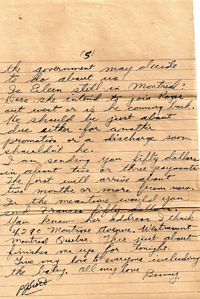 (3)
the government may decide
to do about us!
Is Eileen still in Montreal?
Does she intend to join Roger
out west or is he coming back.
He should be just about
due either for another
promotion or a discharge soon
shouldn't he.
I am sending you fifty dollars
in about two or three payments
The first will arrive about
two months or more from now.
In the meantime would you
send Frances fifty dollars
You know her address I think
4280 Montrose Avenue, Westmount
Montreal Quebec. This just about
finishes me up for tonight.
Give my love to everyone including
the baby, all my love Benny